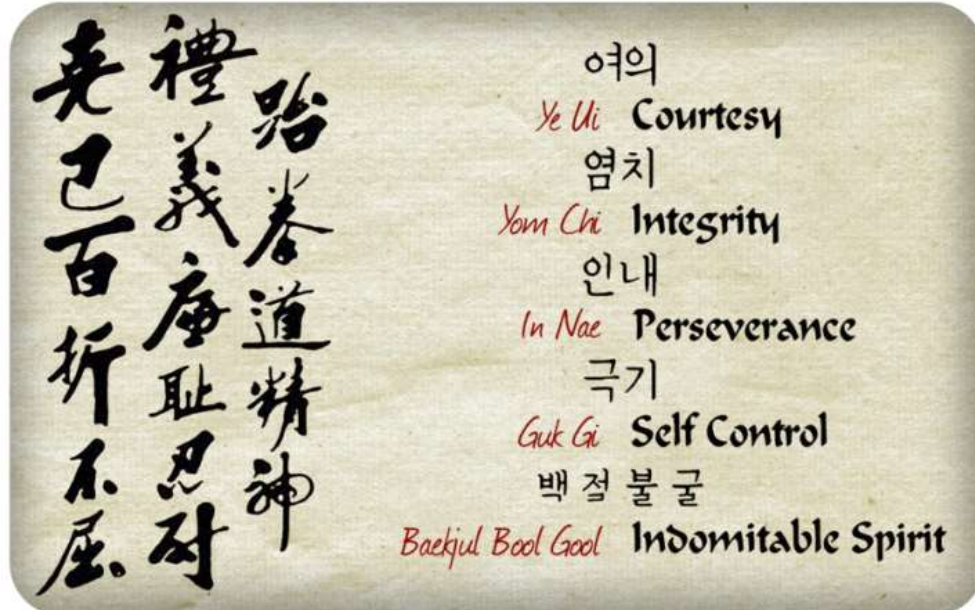 跆拳道精神
禮義廉恥忍耐
克己百折不屈
여의
Ye Ui Courtesy
염치
Yom Chi Integrity
인내
In Nae Perseverance
극기
Guk Gi Self Control
백 절 불 굴
Baekjul Bool Gool Indomitable Spirit